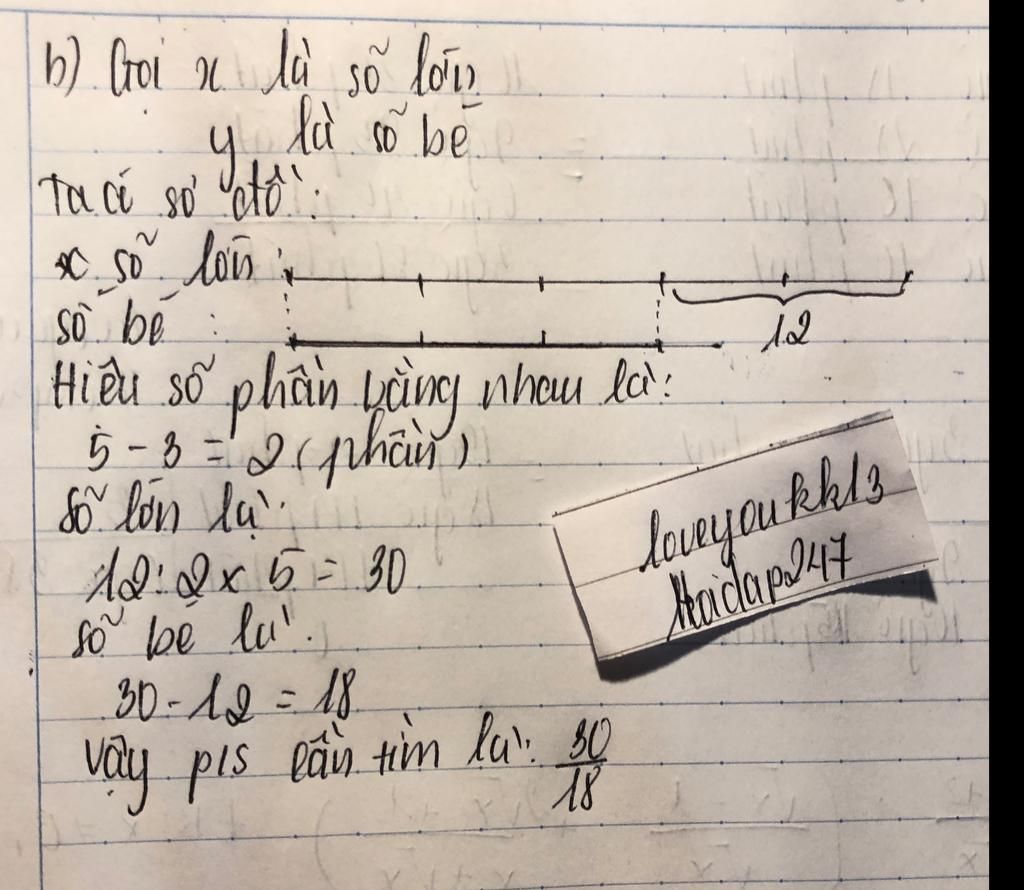 b) Gọi x là số lớn
y là số bé
Ta có sơ đồ:
x số lớn :
số bé :
12
Hiệu số phần bằng nhau là:
5 - 3 = 2 (phần)
số lớn là:
12 : 2 x 5 = 30
số bé là:
30 - 12 = 18
Vậy p/s cần tìm là: 30/18
loveyoukk13
Hoidap247